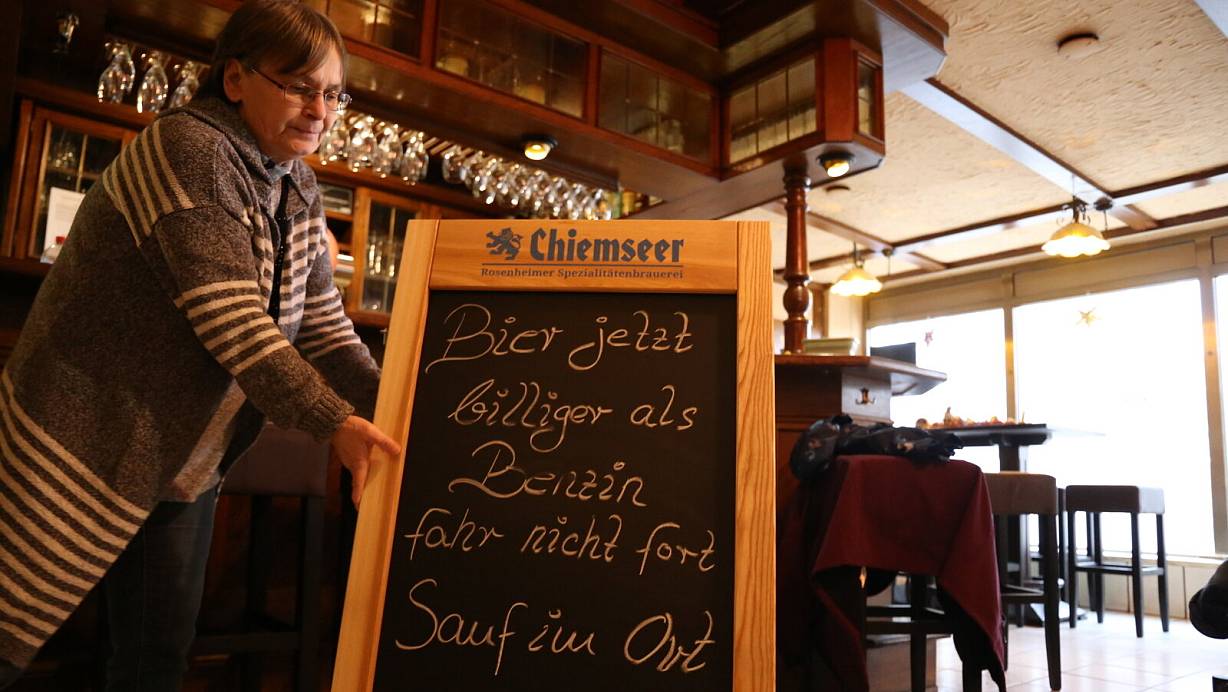 Chiemseer
Rosenheimer Spezialitätenbrauerei
Bier jetzt
billiger als
Benzin
fahr nicht fort
Sauf im Ort